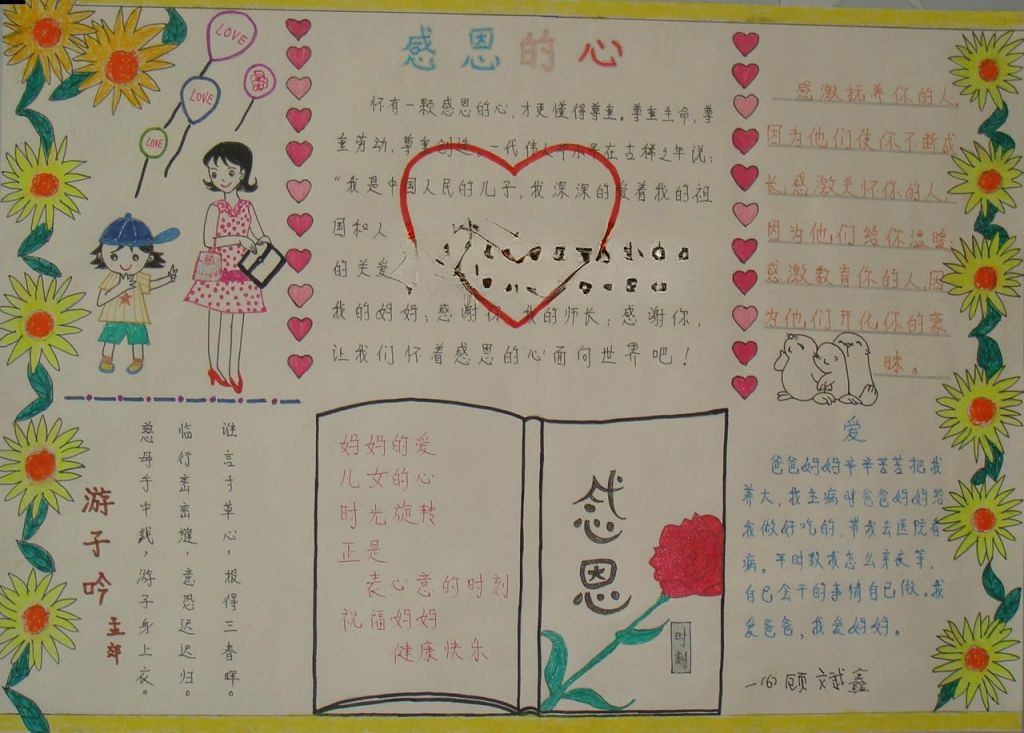 感恩的心
LOVE
LOVE
LOVE
怀有一颗感恩的心,才更懂得尊重。尊重生命,尊
重劳动,尊重创造。一代伟人邓小平在古稀之年说:
“我是中国人民的儿子,我深深的爱着我的祖
国和人
的关爱
我的妈妈;感谢你,我的师长;感谢你,
让我们怀着感恩的心面向世界吧!
感激抚养你的人,
因为他们使你不断成
长,感激关怀你的人,
因为他们给你温暖,
感激教育你的人,因
为他们开化你的蒙
昧。
游子吟
王郊
慈母手中线,游子身上衣。
临行密密缝,意恐迟迟归。
谁言寸草心,报得三春晖。
妈妈的爱
儿女的心
时光旋转
正是
表心意的时刻
祝福妈妈
健康快乐
感恩
时刻
爱
爸爸妈妈辛辛苦苦把我
养大,我生病时爸爸妈妈给
我做好吃的,带我去医院看
病。平时教我怎么穿衣等,
自己会干的事情自己做。我
爱爸爸,我爱妈妈。
一(6)顾斌鑫